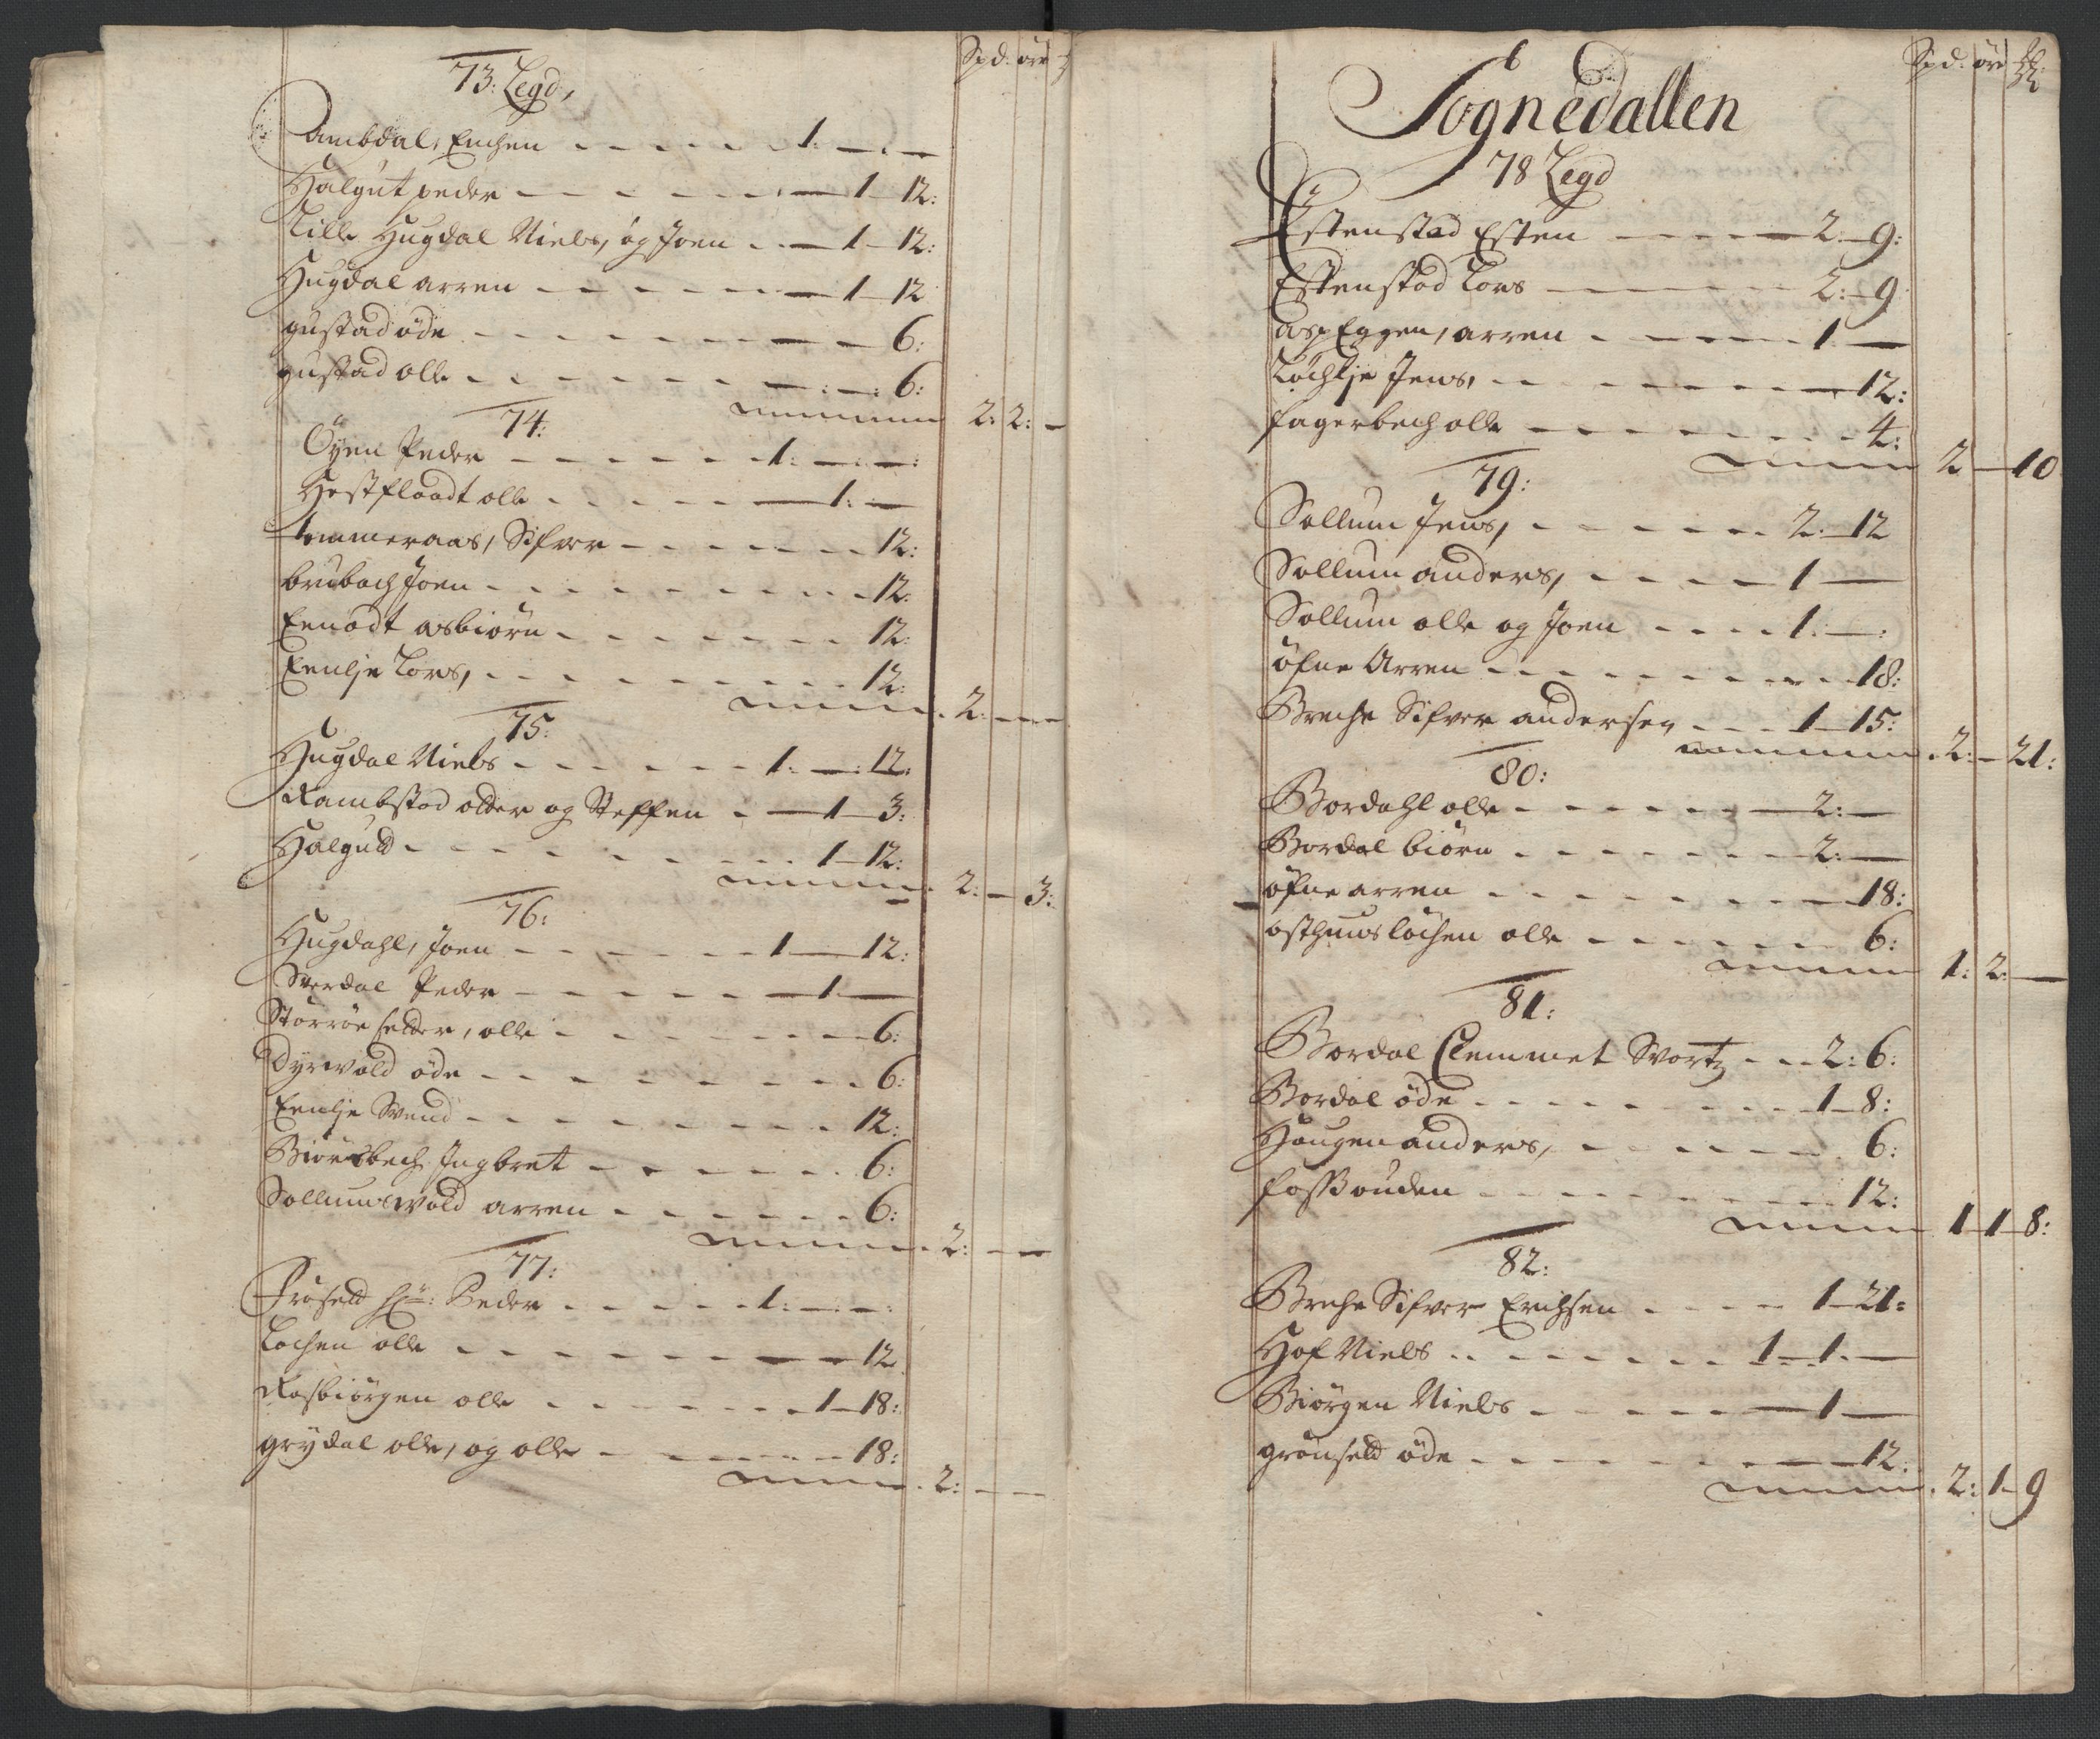 Spd: øre
73: Legd,
Ambdal, Erichen - - - - - 1: — . —
Halgut peder - - - - - — 1 — 12:
Lille Hugdal Niels, og Joen - . — 1 — 12:
Hugdal arren - - - - - — 1 — 12
gustad øde - - - - - — — 6:
gustad olle - - - - - — : — : 6:
2: 2: —
74:
Öyen Peder - - - - - 1: — : — :
Hestfloadt olle - - - - — 1: —
tømmeraas, Sifver - - - - - 12:
brubach Joen - - - - - 12:
Eenødt asbiörn - - - - - 12:
Eenlje Lars, - - - - - 12:
2: — —
75:
Hugdal Niels - - - - - 1: — : 12:
Rambstad older og Steffen - — 1 — 3:
Halguld - - - - - 1 — 12:
2: — 3:
76:
Hugdahl, Joen - - - - - 1 — 12:
Sverdal Peder - - - - - — 1 —
Storröe selder, olle - - - - - 6:
Dyrvold øde - - - - - 6:
Eenlje Svend - - - - - 12:
Biörsbech Ingbret - - - - - 6:
Sollumsvold arren - - - - - 6:
2: — —
77:
Fröseld Hr: Peder - - - - - 1: — : — :
Løchen olle - - - - - — — 12
Rosbiörgen olle - - - - - 1 — 18:
grydal olle, og olle - - - - - 18:
2: — —
Spd: öre
Sognedallen
78 Legd
Estenstad Esten - - - - — 2: — 9:
Estenstad Lars - - - - - 2: — 9
asp Eggen, arren - - - - - 1 —
Løchlje Jens, - - - - - — 12:
fagerbech olle - - - - - 4:
2 — 10
79:
Sollum Jens, - - - - - 2: — 12
Sollum anders, - - - - — 1 —
Sollum olle og Joen - - - - 1: — :
öfne Arren - - - - - 18:
Breche Sifver andersen - - - 1 — 15:
2: — 21:
80:
Bordahl olle - - - - - — 2: —
Bordal biörn - - - - - — 2: —
öfne arren - - - - - — 18:
osthuus løchen olle - - - - - 6:
1: 2: —
81:
Bordal Clemmet Svortz - - - 2: 6:
Bordal øde - - - - - 1 — 8:
Haugen anders, - - - - - 6:
foss ouden - - - - - 12:
1 — 1 — 8:
82:
Breche Sifver Erichsen - - - - 1 — 21:
Hof Niels - - - - - 1 — 1. —
Biörgen Niels - - - - - — 1 —
grönseld øde - - - - - — 12:
2: 1 — 9